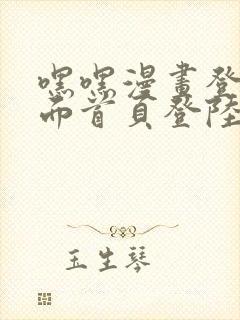 嘿嘿漫畫登
面首頁登陸
玉生琴